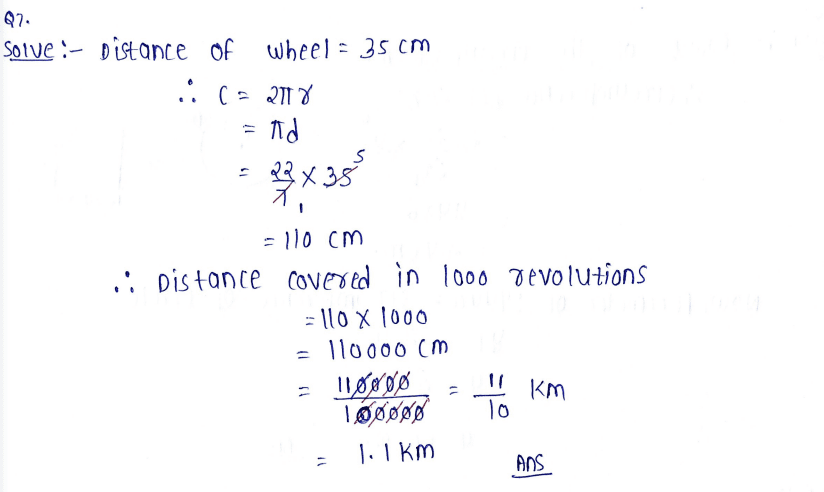 Q7.
Solve :- Distance of wheel = 35 cm
∴ C = 2πr
= πd
= 22/7 × 35 5
1
= 110 cm
∴ Distance covered in 1000 revolutions
= 110 × 1000
= 110000 cm
= 110000/100000 = 11/10 Km
= 1.1 Km Ans